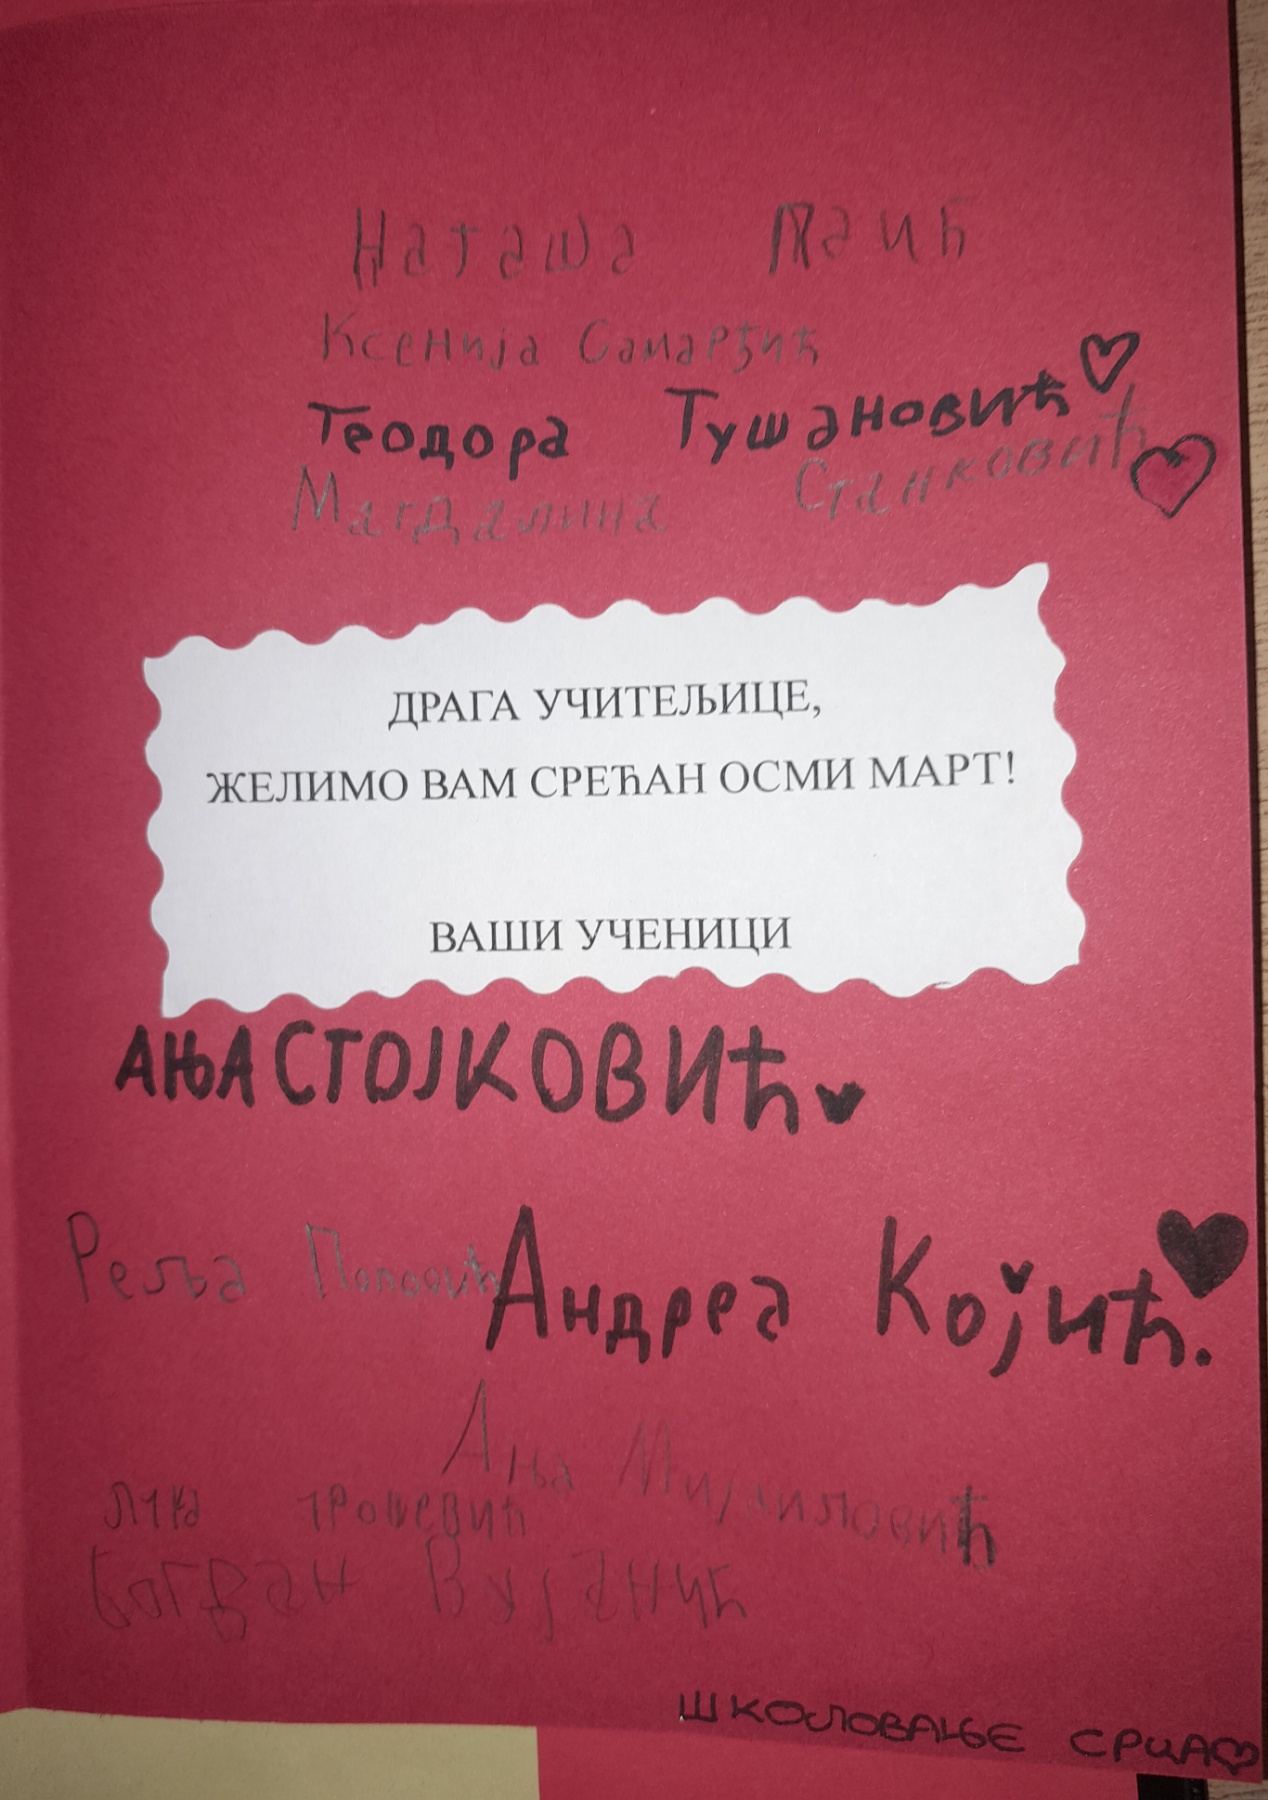 Наташа Паић
Ксенија Самарџић
Теодора Тушановић
Магдалина Станковић
ДРАГА УЧИТЕЉИЦЕ,
ЖЕЛИМО ВАМ СРЕЋАН ОСМИ МАРТ!
ВАШИ УЧЕНИЦИ
АЊА СТОЈКОВИЋ
Реља Поповић
Андреа Којић.
Ања
Лука
Богдан Вујанић
ШКОЛОВАЊЕ СРЦА